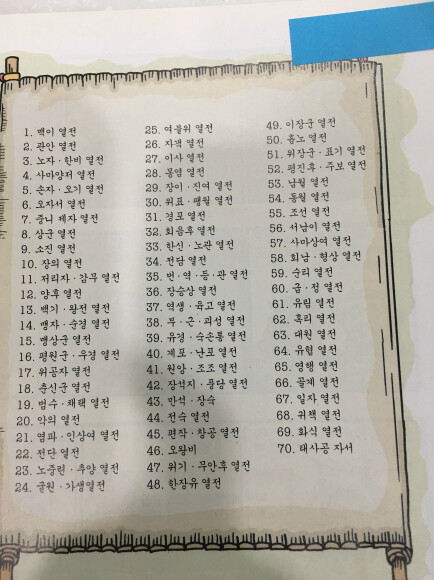 1. 백이 열전
2. 관안 열전
3. 노자·한비 열전
4. 사마양저 열전
5. 손자·오기 열전
6. 오자서 열전
7. 중니 제자 열전
8. 상군 열전
9. 소진 열전
10. 장의 열전
11. 저리자·감무 열전
12. 양후 열전
13. 백기·왕전 열전
14. 맹자·순경 열전
15. 맹상군 열전
16. 평원군·우경 열전
17. 위공자 열전
18. 춘신군 열전
19. 범수·채택 열전
20. 악의 열전
21. 염파·인상여 열전
22. 전단 열전
23. 노중련·추양 열전
24. 굴원·가생열전
25. 여불위 열전
26. 자객 열전
27. 이사 열전
28. 몽염 열전
29. 장이·진여 열전
30. 위표·팽월 열전
31. 경포 열전
32. 회음후 열전
33. 한신·노관 열전
34. 전담 열전
35. 번·역·등·관 열전
36. 장승상 열전
37. 역생·육고 열전
38. 부·근·괴성 열전
39. 유경·숙손통 열전
40. 계포·난포 열전
41. 원앙·조조 열전
42. 장석지·풍당 열전
43. 만석·장숙
44. 전숙 열전
45. 편작·창공 열전
46. 오왕비
47. 위기·무안후 열전
48. 한장유 열전
49. 이장군 열전
50. 흉노 열전
51. 위장군·표기 열전
52. 평진후·주보 열전
53. 남월 열전
54. 동월 열전
55. 조선 열전
56. 서남이 열전
57. 사마상여 열전
58. 회남·형상 열전
59. 순리 열전
60. 급·정 열전
61. 유림 열전
62. 혹리 열전
63. 대원 열전
64. 유협 열전
65. 영행 열전
66. 골계 열전
67. 일자 열전
68. 귀책 열전
69. 화식 열전
70. 태사공 자서